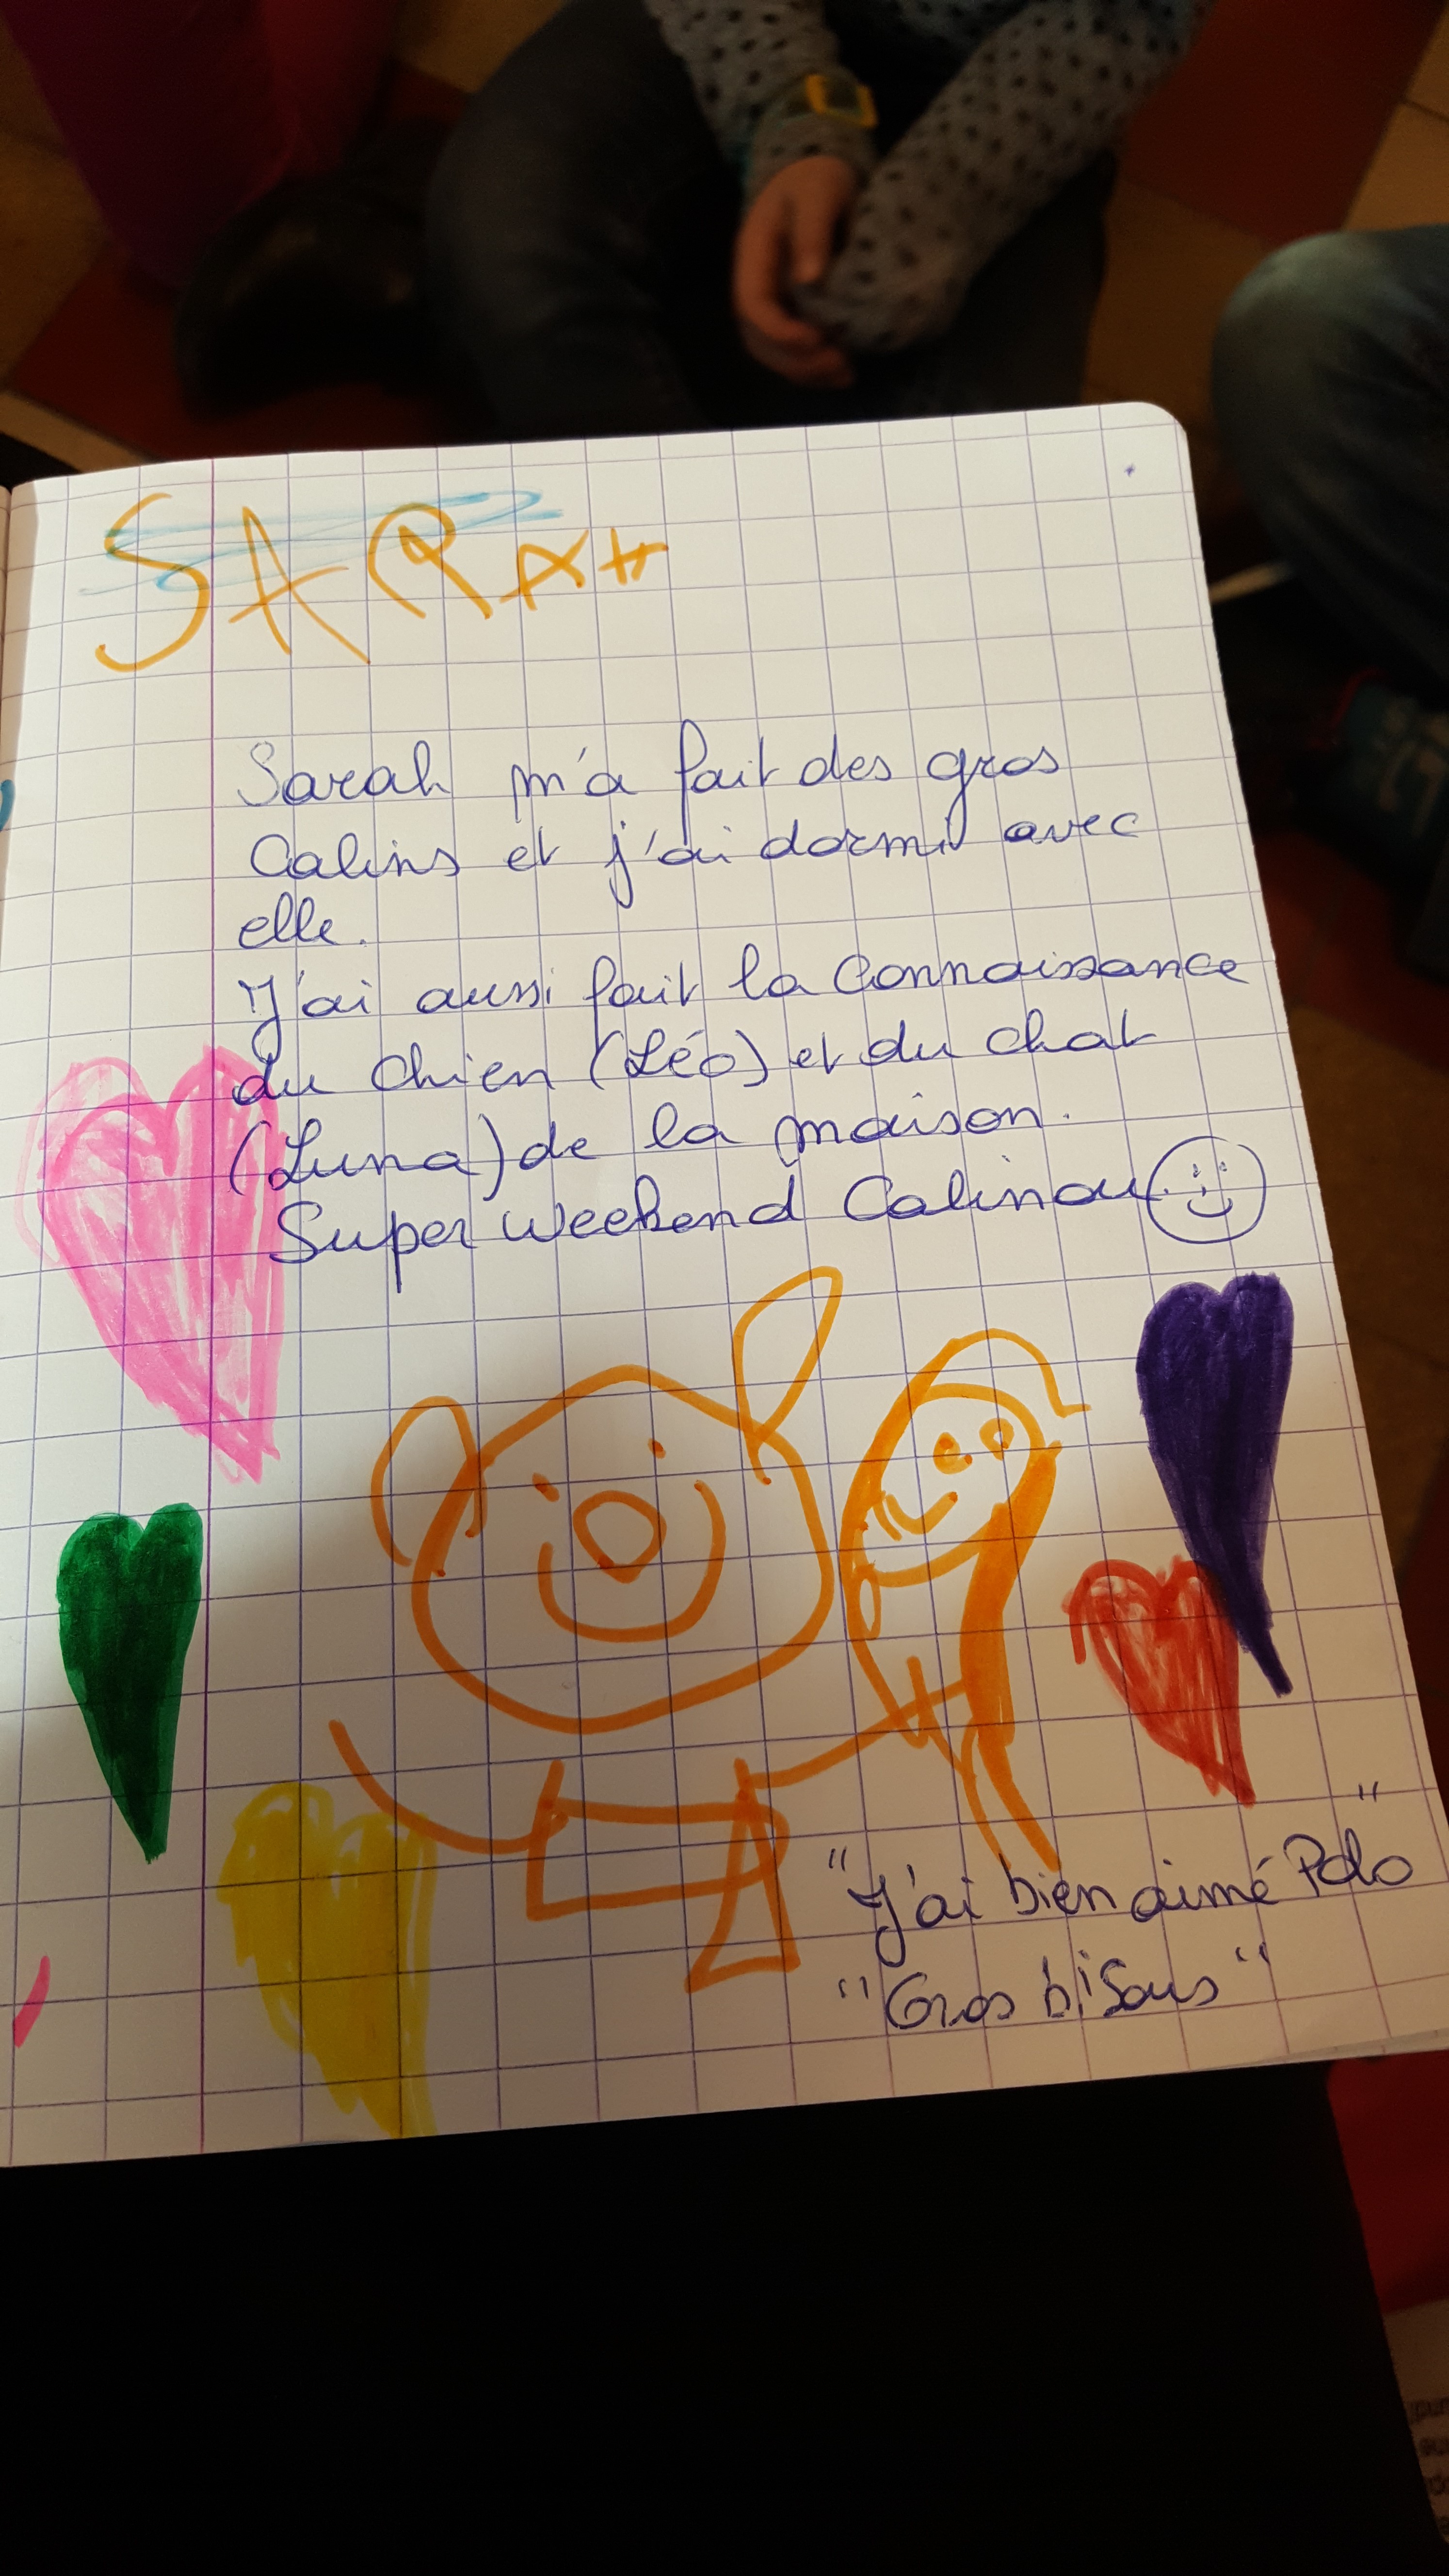 SARAH
Sarah m'a fait des gros
Calins et j'ai dormi avec
elle.
J'ai aussi fait la connaissance
du chien (Léo) et du chat
(Luna) de la maison.
Super weekend Calinou
"J'ai bien aimé Polo"
"Gros bisous"